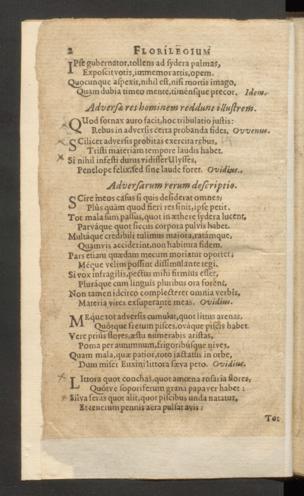 2 FLORILEGIUM
IPse gubernator, tollens ad sydera palmas,
Exposcit votis, immemor artis, opem.
Quocunque aspexit, nihil est, nisi mortis imago,
Quam dubia timeo mente, timensque precor. Idem.
Adversæ res hominem reddunt illustrem.
QUod fornax auro facit, hoc tribulatio justis:
Rebus in adversis certa probanda fides. Ovvenus.
SCilicet adversis probitas exercita rebus,
Tristi materiam tempore laudis habet.
Si nihil infesti durus vidisset Ulysses,
Penelope felix, sed sine laude foret. Ovidius.
Adversarum rerum descriptio.
SCire meos casus si quis desiderat omnes:
Plus quàm quod fieri res sinit, ipse petit.
Tot mala sum passus, quot in æthere sydera lucent,
Parváque quot siccus corpora pulvis habet.
Multáque credibili tulimus majora, ratámque,
Quamvis acciderint, non habitura fidem.
Pars etiam quædam mecum moriatur oportet;
Méque velim possint dissimulante tegi.
Si vox infragilis, pectus mihi firmius esset,
Pluráque cum linguis pluribus ora forent,
Non tamen idcirco complecterer omnia verbis,
Materia vires exsuperante meas. Ovidius.
MEque tot adversis cumulat, quot litus arenas,
Quótque fretum pisces, ováque piscis habet.
Vere prius flores, æstu numerabis aristas,
Poma per autumnum, frigoribusque nives,
Quam mala, quæ patior, toto jactatus in orbe,
Dum miser Euxini littora sæva peto. Ovidius.
LIttora quot conchas, quot amœna rosaria flores,
Quótve soporiferum grana papaver habet:
Silva feras quot alit, quot piscibus unda natatur,
Et tenerum pennis aera pulsat avis:
Tot